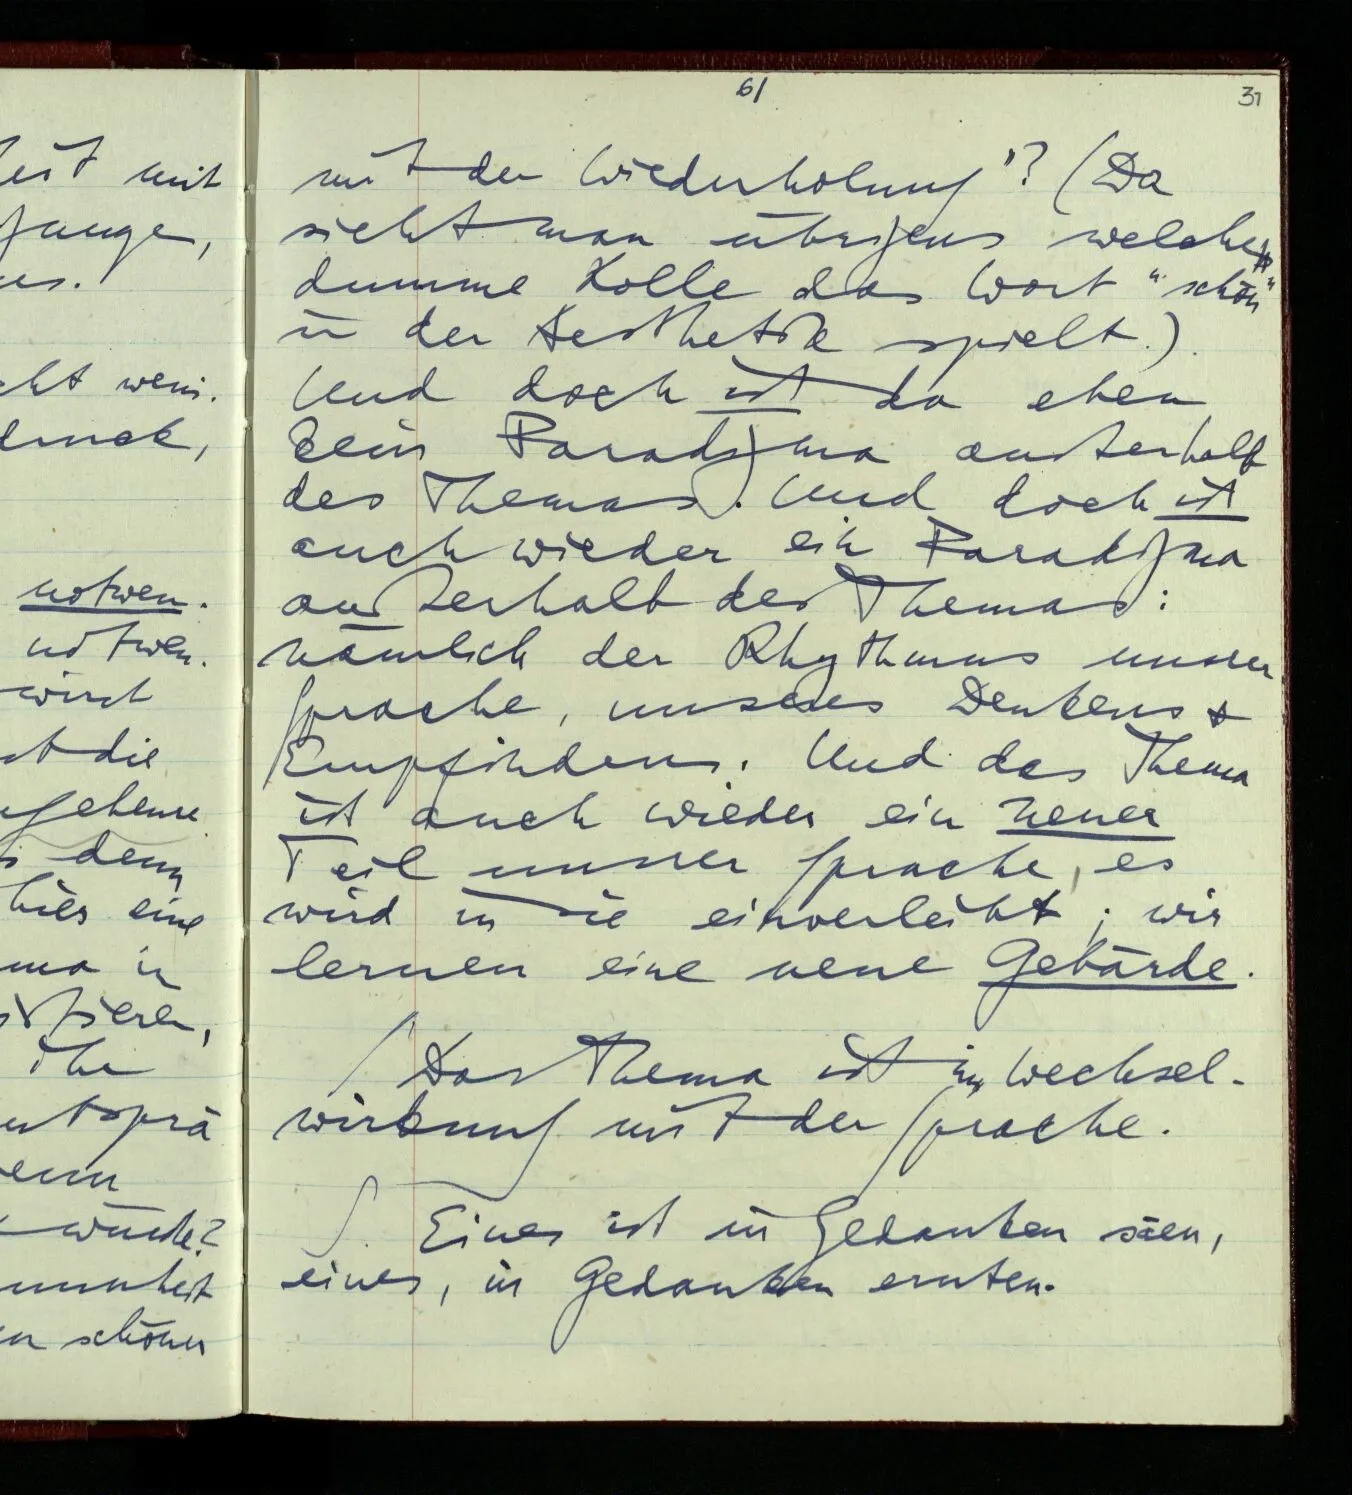 mit
fange,
cht weni-
druck,
notwen-
notwen-
wird
die
denn
hier eine
in
ihr
entsprä
würde?
schöner
61
31
mit der Wiederholung"? (Da
sieht man übrigens welche
dumme Rolle das Wort "schön"
in der Aesthetik spielt.)
Und doch ist da eben
kein Paradigma außerhalb
des Themas. Und doch ist
auch wieder ein Paradigma
außerhalb des Themas:
nämlich der Rhythmus unsrer
Sprache, unseres Denkens &
Empfindens. Und das Thema
ist auch wieder ein neuer
Teil unsrer Sprache, es
wird in sie einverleibt; wir
lernen eine neue Gebärde.
/ Das Thema ist in Wechsel-
wirkung mit der Sprache.
∫ Eines ist in Gedanken säen,
eines, in Gedanken ernten.